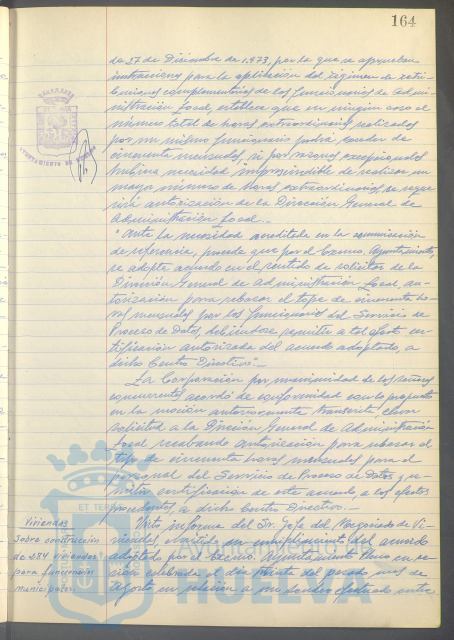 164
de 27 de Diciembre de 1.973, por la que se aprueban
instrucciones para la aplicación del régimen de retri-
buciones complementarias de los funcionarios de Admi-
nistración Local, establece que en ningún caso el
número total de horas extraordinarias realizadas
por un mismo funcionario podrá exceder de
cincuenta mensuales, si por razones excepcionales
hubiera necesidad imprescindible de realizar un
mayor número de horas extraordinarias, se reque-
rirá autorización de la Dirección General de
Administración Local.
"Ante la necesidad acreditada en la comunicación
de referencia, procede que por el Excmo. Ayuntamiento,
se adopte acuerdo en el sentido de solicitar de la
Dirección General de Administración Local, au-
torización para rebasar el tope de cincuenta ho-
ras mensuales por los funcionarios del Servicio de
Proceso de Datos, debiéndose remitir a tal efecto cer-
tificación autorizada del acuerdo adoptado, a
dicho Centro Directivo".
La Corporación por unanimidad de los señores
concurrentes acordó de conformidad con lo propuesto
en la moción anteriormente transcrita, elevar
solicitud a la Dirección General de Administración
Local recabando autorización para rebasar el
tope de cincuenta horas mensuales para el
personal del Servicio de Proceso de Datos y re-
mitir certificación de este acuerdo, a los efectos
procedentes, a dicho Centro Directivo.
Viviendas
Sobre construcción
de 284 viviendas
para funcionarios
municipales.
Visto informe del Sr. Jefe del Negociado de Vi-
viendas, emitido en cumplimiento del acuerdo
adoptado por el Excmo. Ayuntamiento Pleno en se-
sión celebrada el día treinta del pasado mes de
Agosto en relación a un sondeo efectuado entre
AYUNTAMIENTO DE HUELVA
Ayuntamiento de
HUELVA